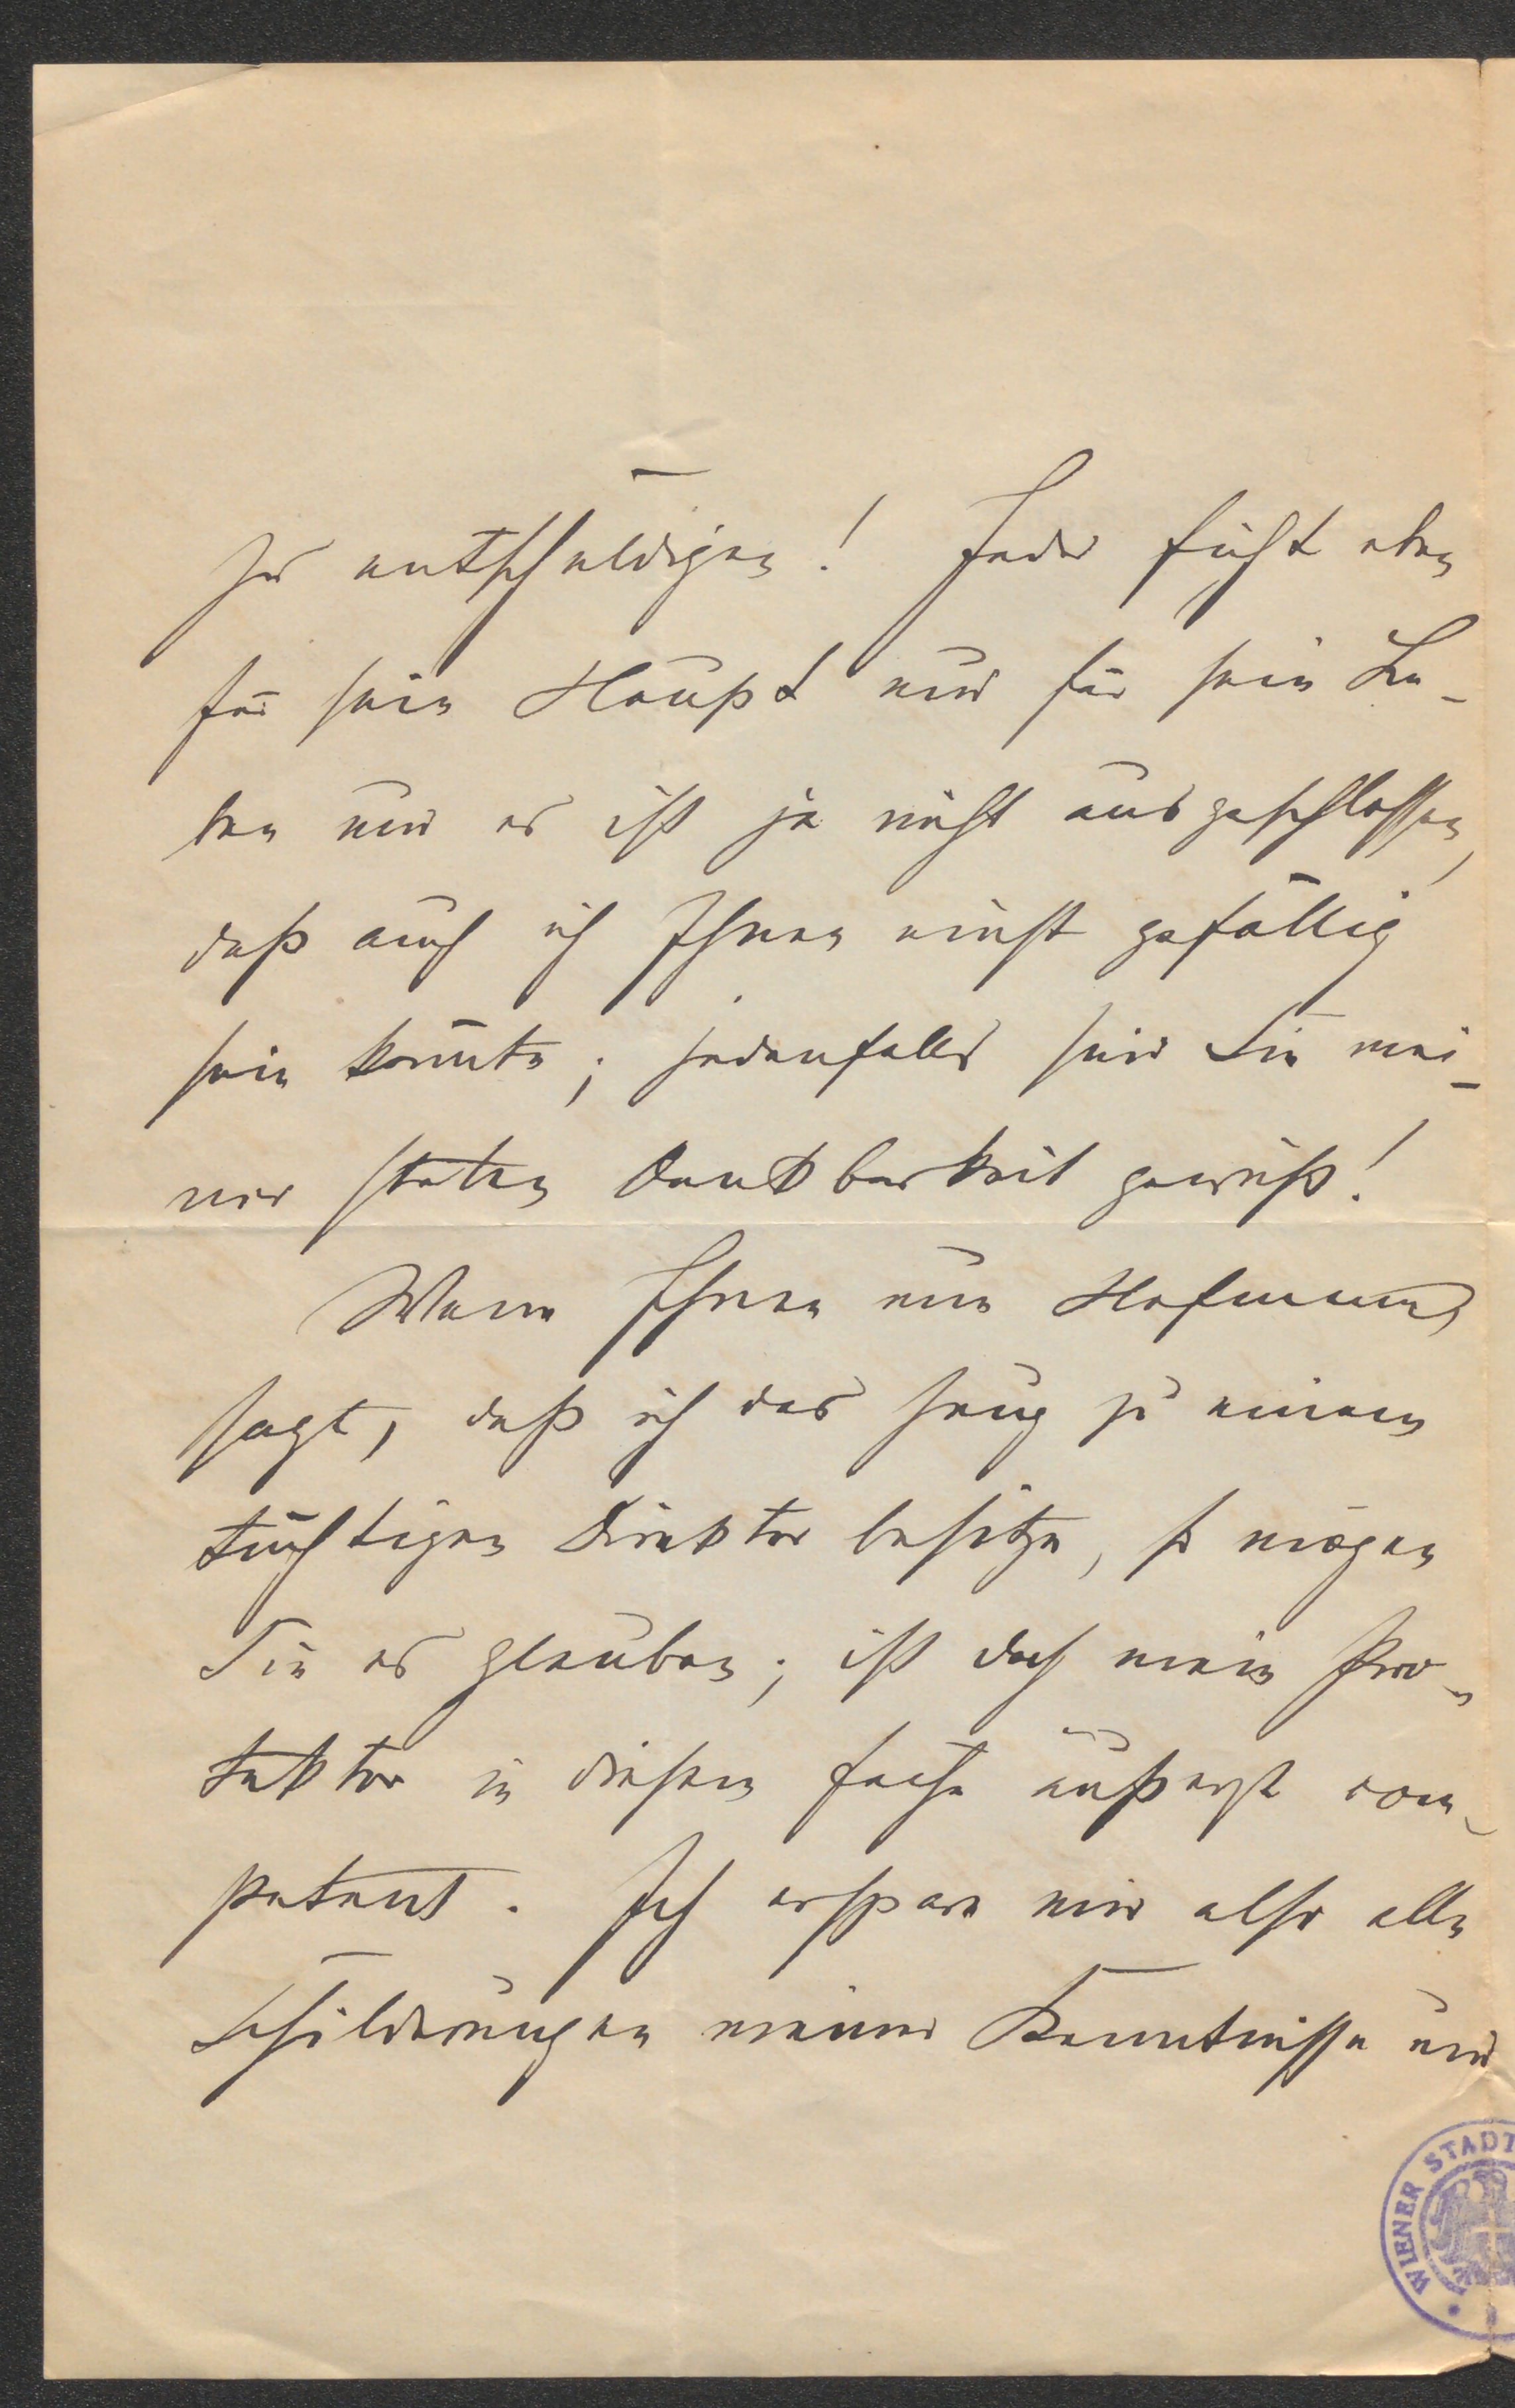 zu entschuldigen! Jeder ficht eben
für sein Haupt und für sein Le-
ben und es ist ja nicht ausgeschlossen,
daß auch ich Ihnen einst gefällig
sein könnte; jedenfalls sind Sie mei-
ner steten Dankbarkeit gewiß!
Wenn Ihnen nun Hofmann
sagt, daß ich das Zeug zu einem
tüchtigen Direktor besitze, so mögen
Sie es glauben; ist doch mein Pro-
tektor in diesem Fache äußerst com-
petent. Ich erspare mir also alle
Schilderungen meiner Kenntnisse und
WIENER STADT